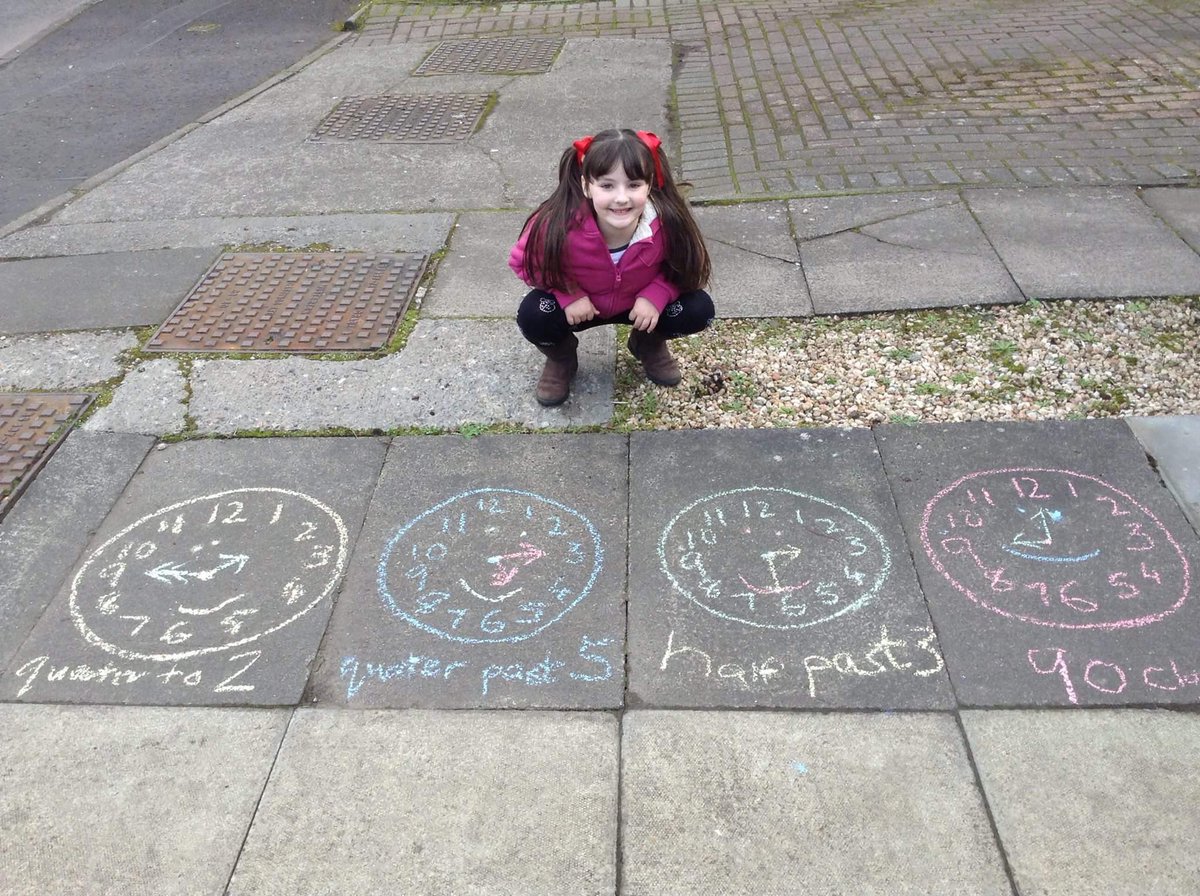 12 1 2 3 4 5 6 7 8 9 10 11
quater to 2
12 1 2 3 4 5 6 7 8 9 10 11
quater past 5
12 1 2 3 4 5 6 7 8 9 10 11
half past 3
12 1 2 3 4 5 6 7 8 9 10 11
9 o clo